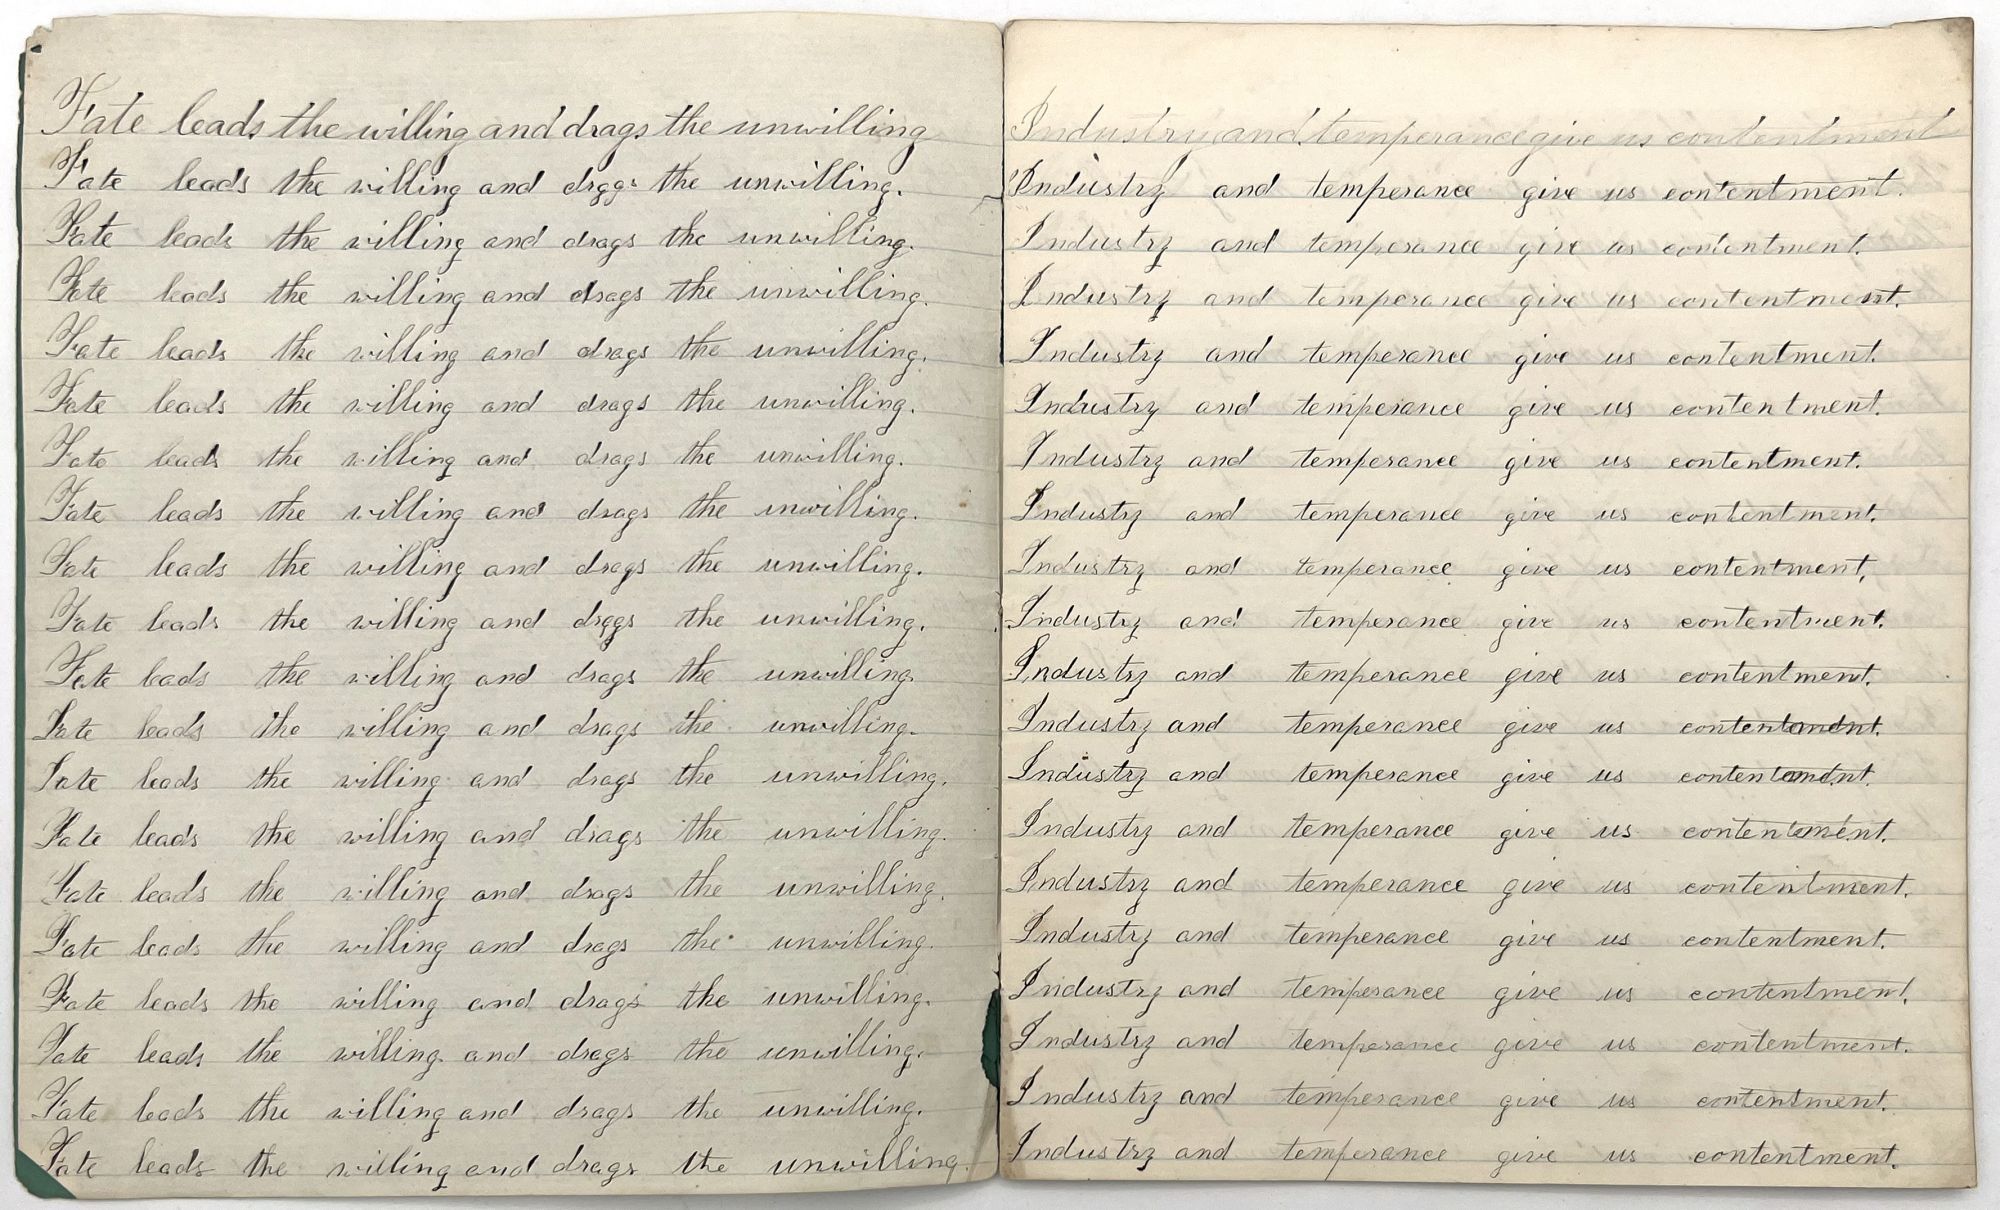 Fate leads the willing and drags the unwilling
Fate leads the willing and drags the unwilling.
Fate leads the willing and drags the unwilling.
Fate leads the willing and drags the unwilling.
Fate leads the willing and drags the unwilling.
Fate leads the willing and drags the unwilling.
Fate leads the willing and drags the unwilling.
Fate leads the willing and drags the unwilling.
Fate leads the willing and drags the unwilling.
Fate leads the willing and drags the unwilling.
Fate leads the willing and drags the unwilling.
Fate leads the willing and drags the unwilling.
Fate leads the willing and drags the unwilling.
Fate leads the willing and drags the unwilling.
Fate leads the willing and drags the unwilling.
Fate leads the willing and drags the unwilling.
Fate leads the willing and drags the unwilling.
Fate leads the willing and drags the unwilling.
Fate leads the willing and drags the unwilling.
Fate leads the willing and drags the unwilling.
Industry and temperance give us contentment
Industry and temperance give us contentment.
Industry and temperance give us contentment.
Industry and temperance give us contentment.
Industry and temperance give us contentment.
Industry and temperance give us contentment.
Industry and temperance give us contentment.
Industry and temperance give us contentment.
Industry and temperance give us contentment.
Industry and temperance give us contentment.
Industry and temperance give us contentment.
Industry and temperance give us contentment.
Industry and temperance give us contentment.
Industry and temperance give us contentment.
Industry and temperance give us contentment.
Industry and temperance give us contentment.
Industry and temperance give us contentment.
Industry and temperance give us contentment.
Industry and temperance give us contentment.
Industry and temperance give us contentment.